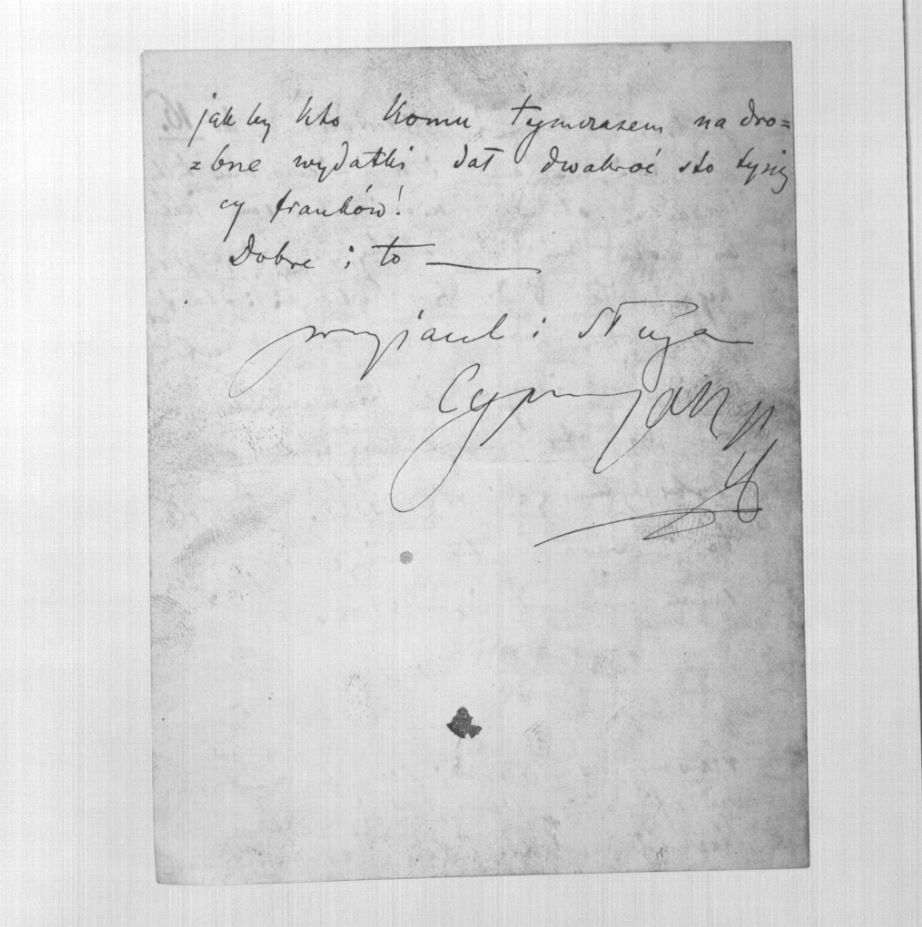 jakby kto komu tymczasem na dro=
zbne wydatki dał dwakroć sto tysię
cy franków!
Dobre i to ———
przyjaciel i sługa
Cypryjan N